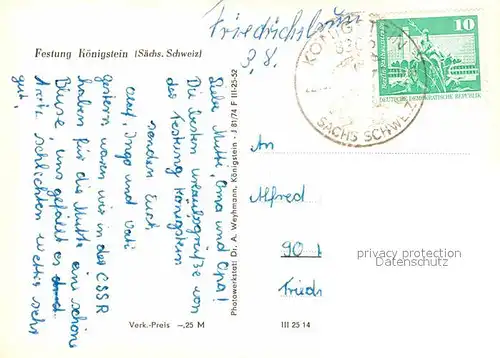 Friedrichs
3.8.
KÖNIGST
SÄCHS SCHWEIZ
10
DEUTSCHE DEMOKRATISCHE REPUBLIK
Festung Königstein (Sächs. Schweiz)
Liebe Mutti, Oma und Opa!
Die besten Urlaubsgrüße von
der Festung Königstein
senden Euch
Ingo und Vati
gestern waren wir in der CSSR
haben für die Mutti eine schöne
Bluse uns gefällt es
schlichten
gut.
Photowerkstatt Dr. A. Weyhmann, Königstein - J 81/74 F III-25-52
Verk.-Preis —,25 M
III 25 14
An
Alfred
90
Friedr
privacy protection
Datenschutz